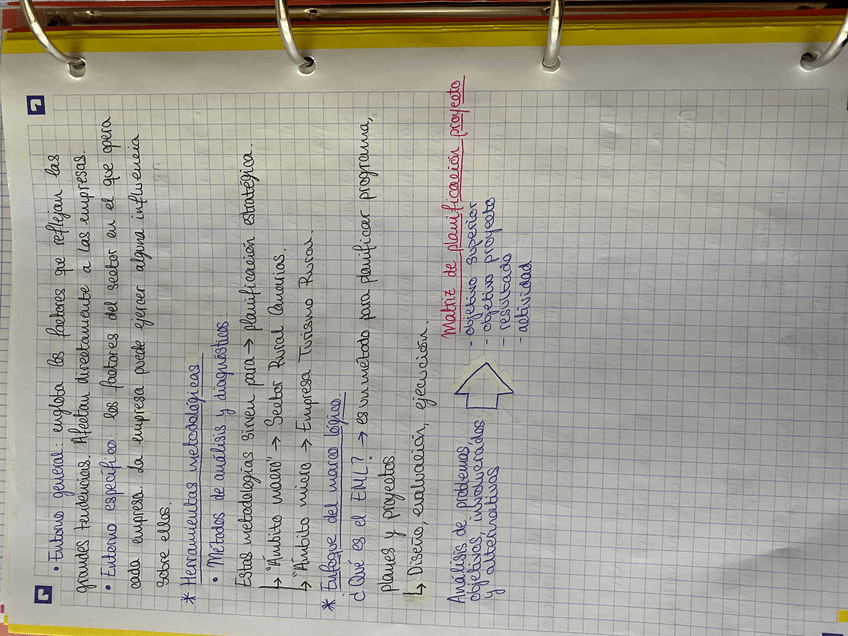 • Entorno general: engloba los factores que reflejan las
grandes tendencias. Afectan directamente a las empresas.
• Entorno específico: los factores del sector en el que opera
cada empresa. La empresa puede ejercer alguna influencia
sobre ellos.
* Herramientas metodológicas
• Métodos de análisis y diagnósticos:
Estas metodologías sirven para → planificación estratégica.
↳ "Ámbito macro" → Sector Rural Canarias.
↳ "Ámbito micro → Empresa Turismo Rural.
* Enfoque del marco lógico
¿Qué es el EML? → es un método para planificar programa,
planes y proyectos
↳ Diseño, evaluación, ejecución.
Análisis de problemas,
objetivos, involucrados
y alternativas
Matriz de planificación proyecto
- objetivo superior
- objetivo proyecto
- resultado
- actividad